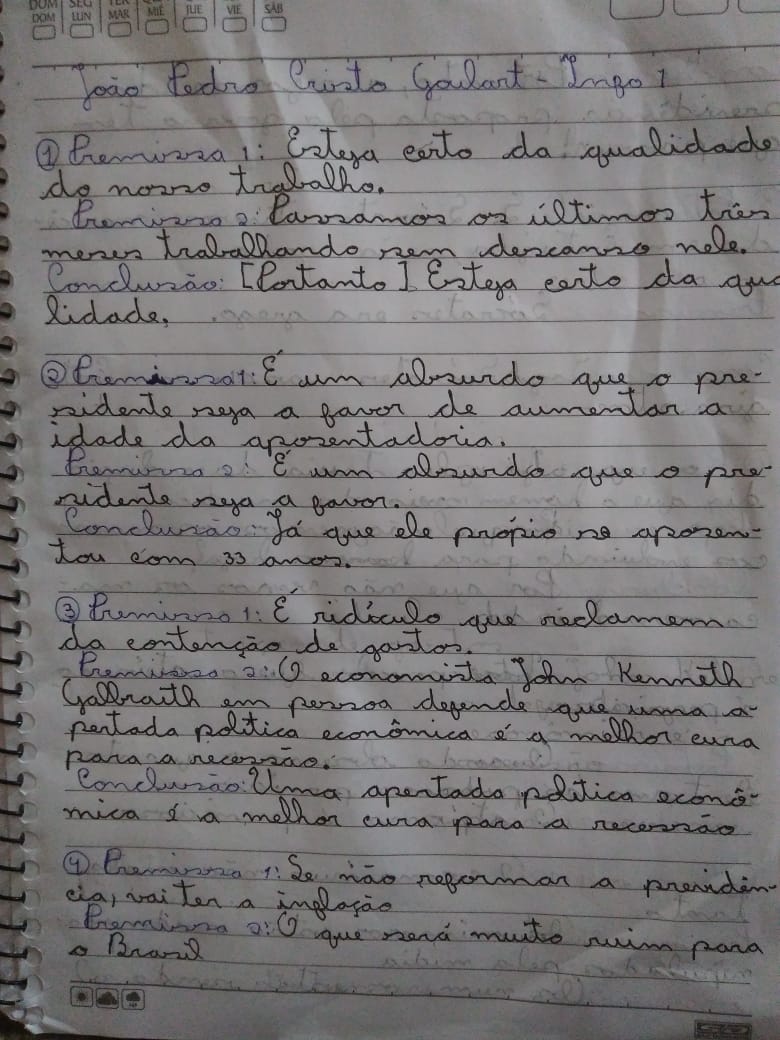 DOM SEG TER QUA QUI SEX SÁB
DOM LUN MAR MIÉ JUE VIE SÁB
João Pedro Cristo Goulart - Info 1
① Premissa 1: Esteja certo da qualidade
do nosso trabalho.
Premissa 2: Passamos os últimos três
meses trabalhando sem descanso nele.
Conclusão: [Portanto] Esteja certo da qua
lidade.
② Premissa 1: É um absurdo que o pre-
sidente seja a favor de aumentar a
idade da aposentadoria.
Premissa 2: É um absurdo que o pre-
sidente seja a favor.
Conclusão: Já que ele própio se aposen-
tou com 33 anos.
③ Premissa 1: É ridículo que reclamem
da contenção de gastos.
Premissa 2: O economista John Kenneth
Galbraith em pessoa defende que uma a-
pertada política econômica é a melhor cura
para a recessão.
Conclusão: Uma apertada política econô-
mica é a melhor cura para a recessão
④ Premissa 1: Se não reformar a previdên-
cia, vai ter a inflação
Premissa 2: O que será muito ruim para
o Brasil